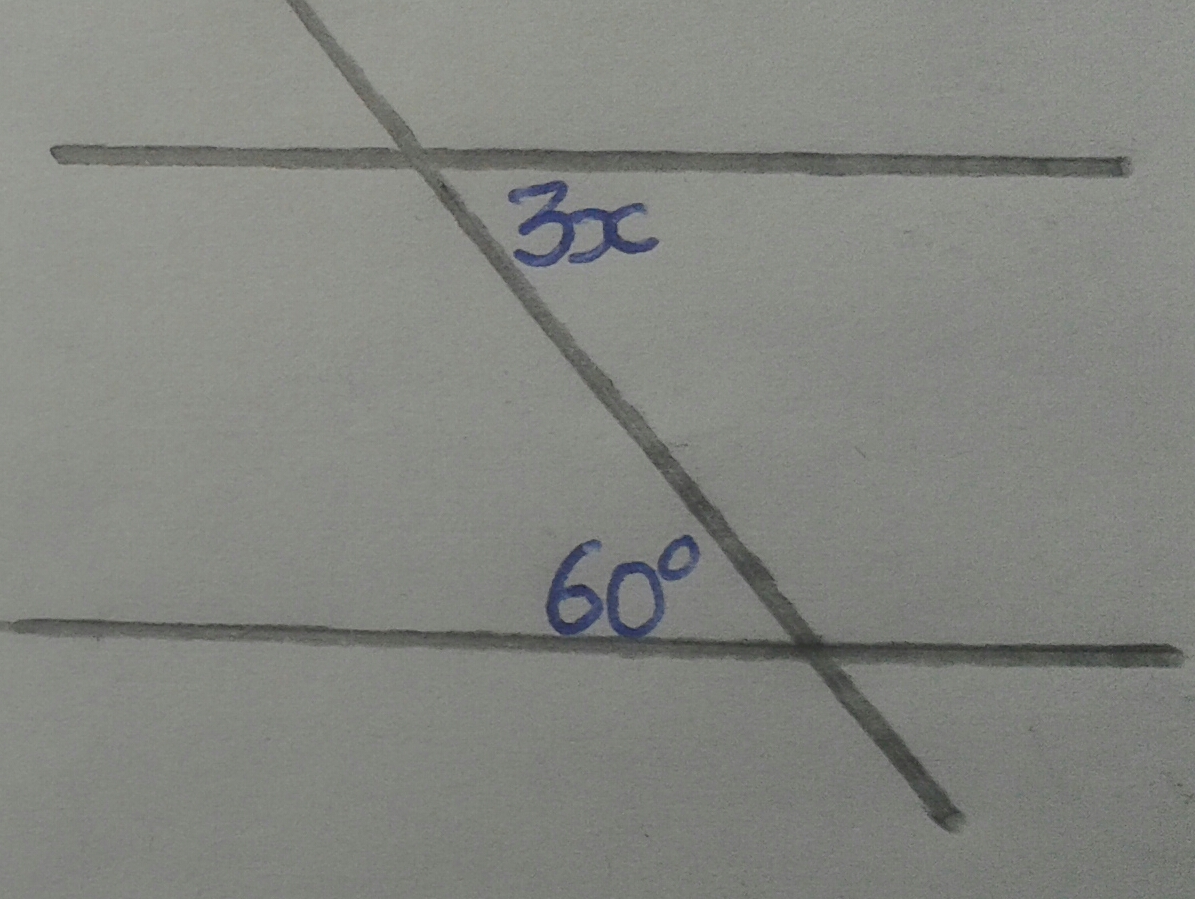 3x
60°